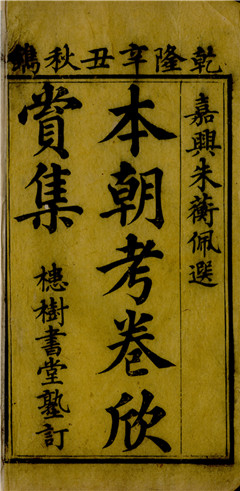 乾隆辛丑秋鐫
嘉興朱蘅佩選
本朝考卷欣
賞集
樹書堂塾訂